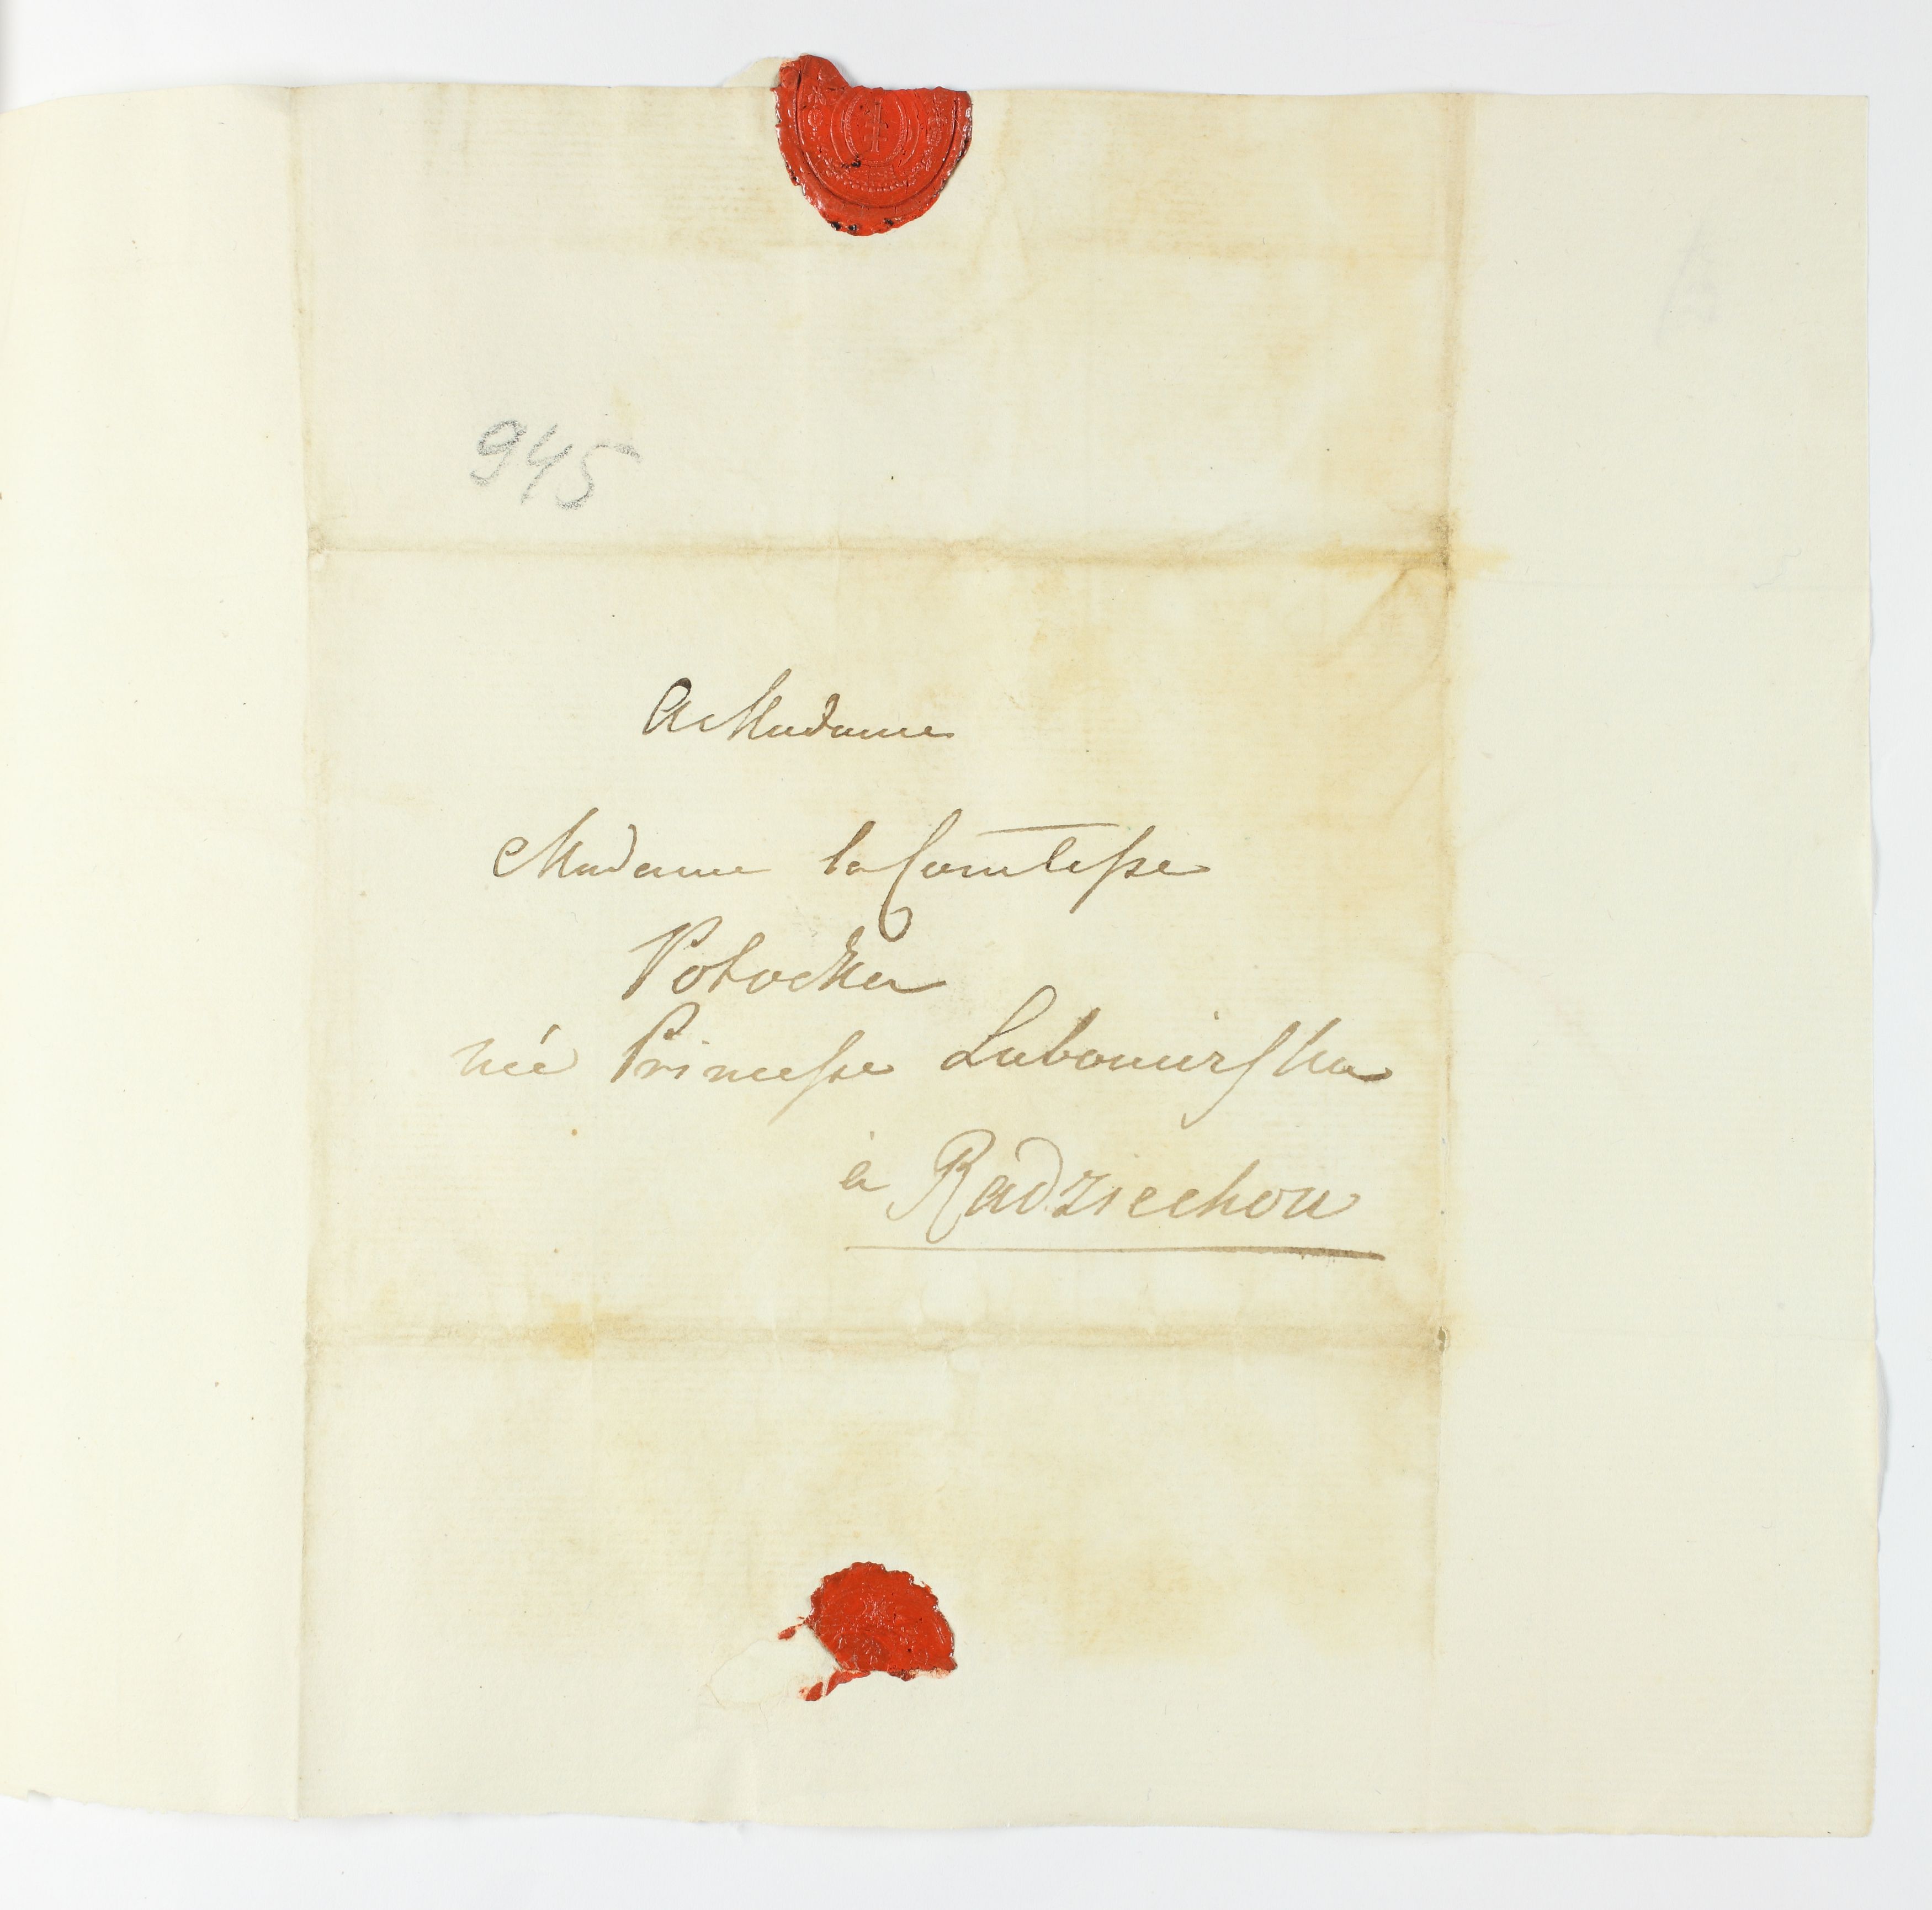 945
A Madame
Madame la Comtesse
Potocka
née Princesse Lubomirska
à Radziechow